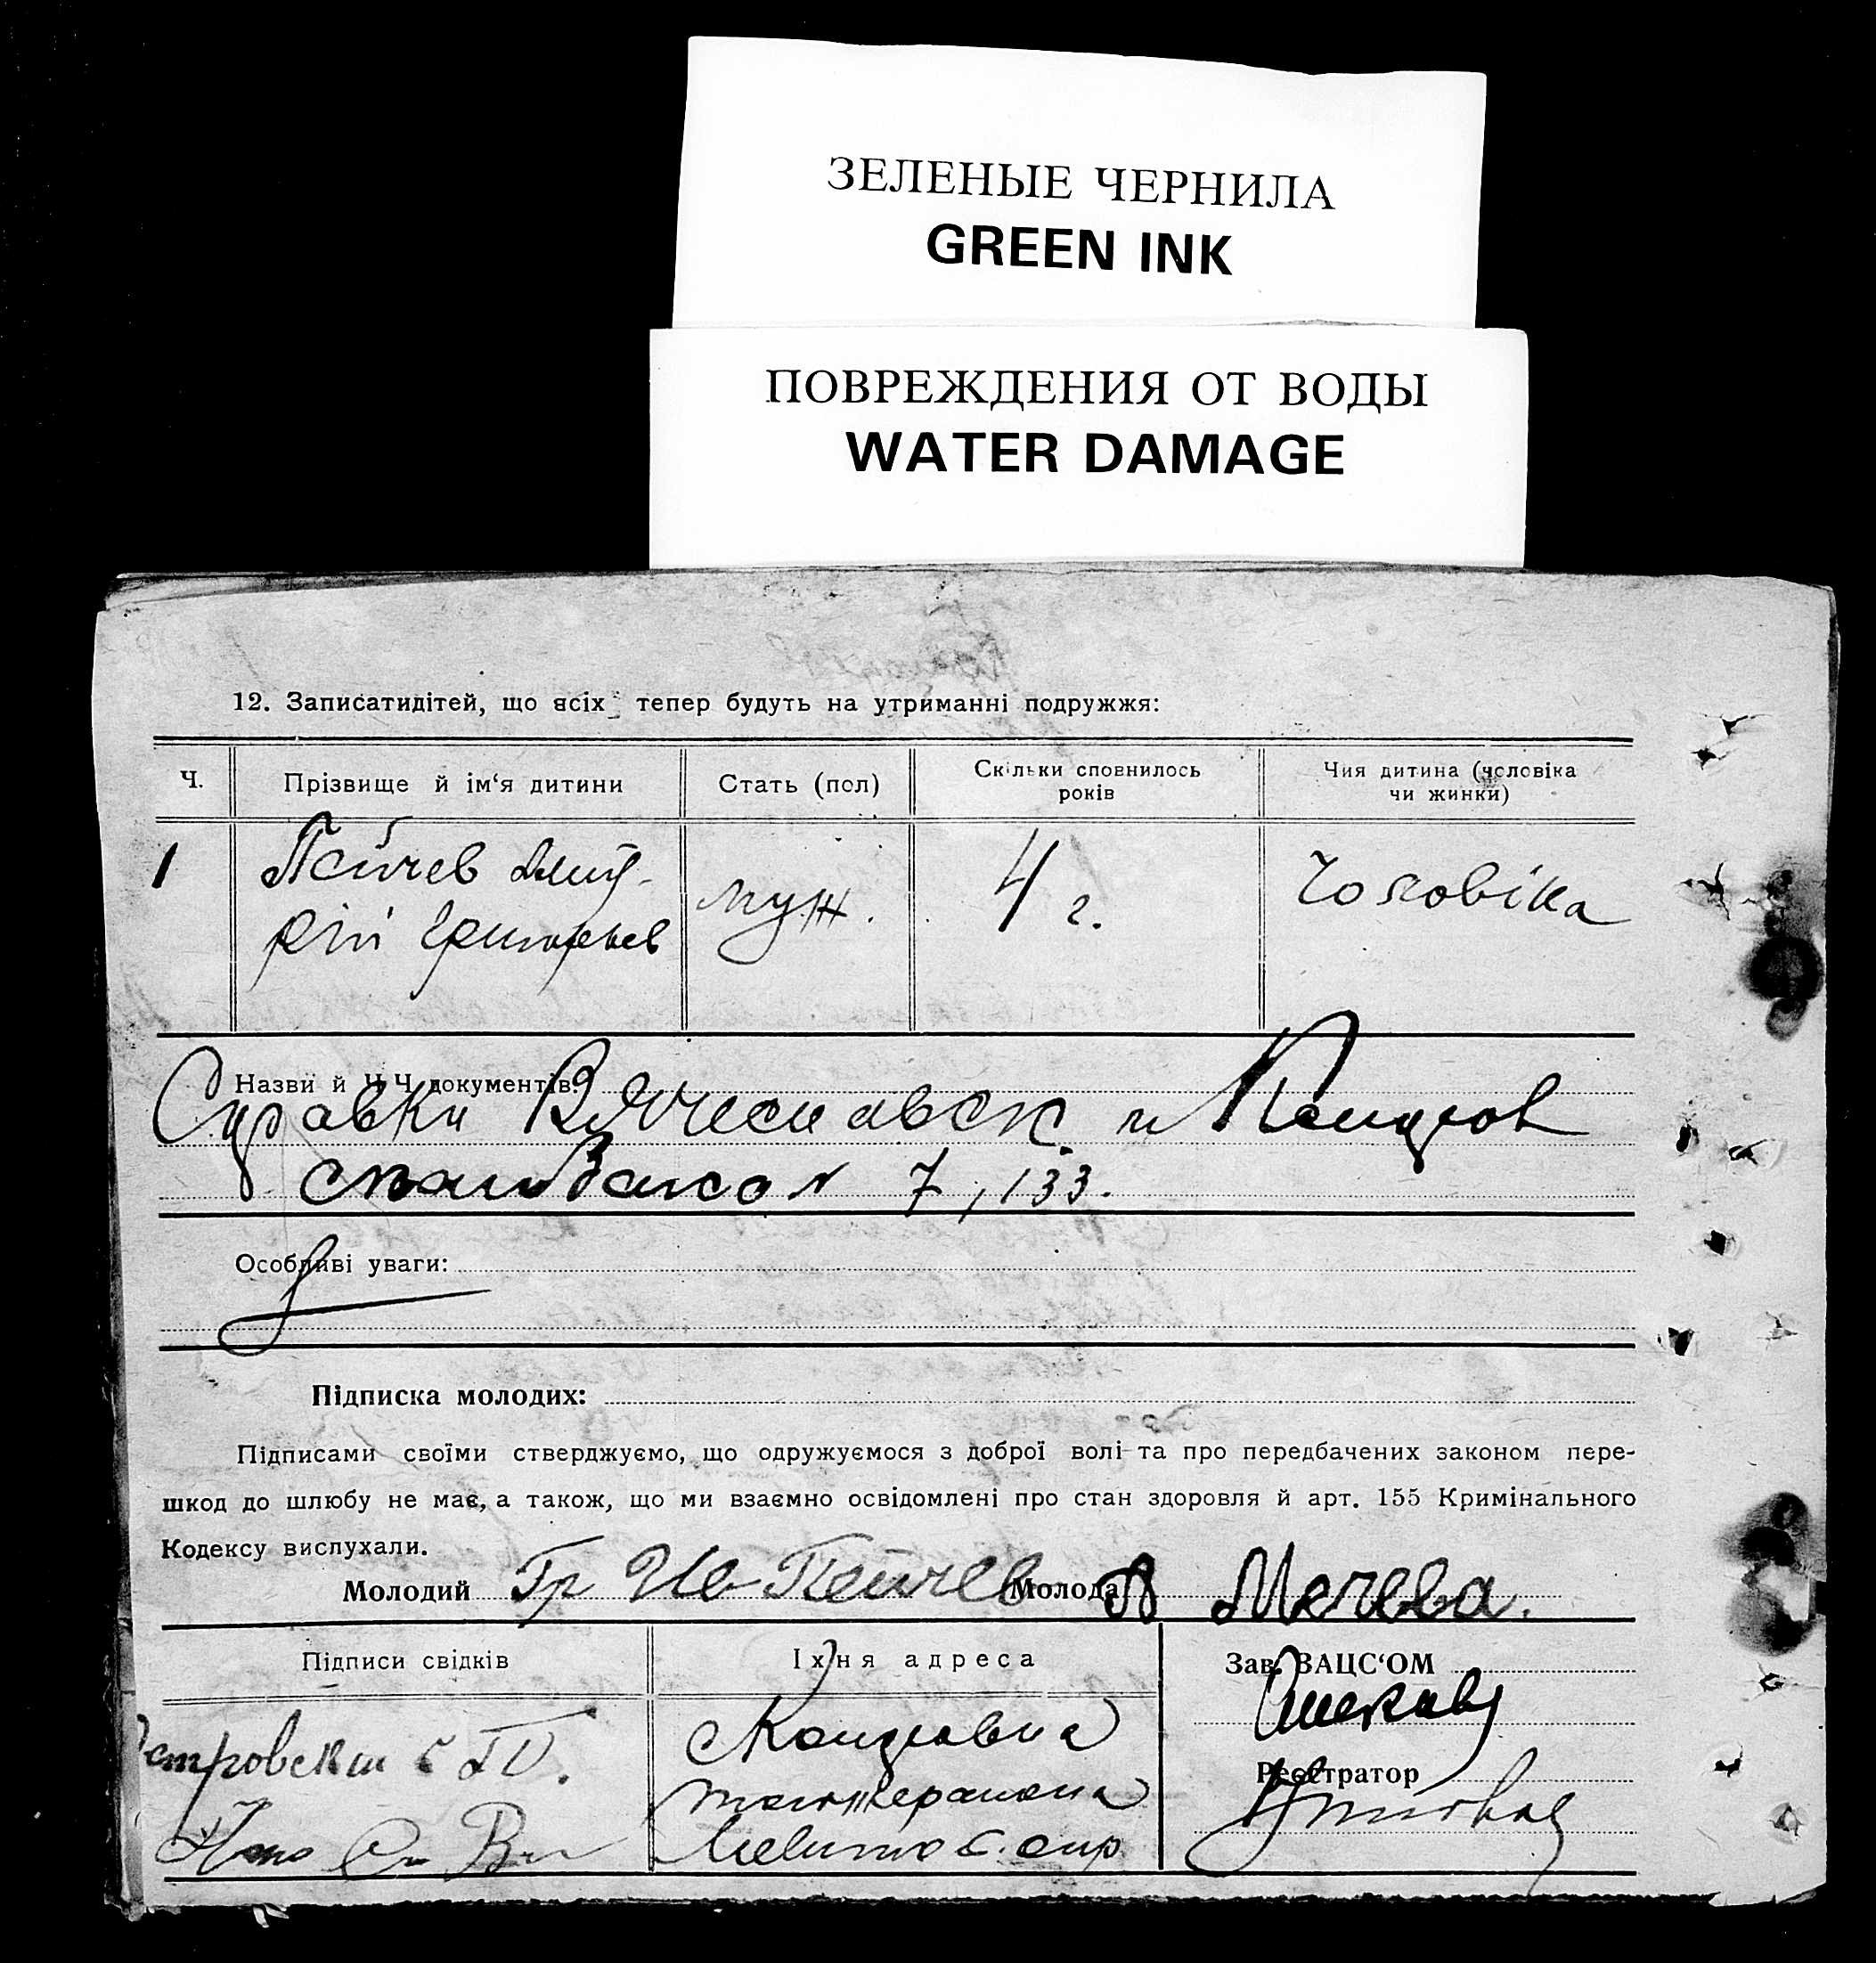 ЗЕЛЕНЫЕ ЧЕРНИЛА
GREEN INK
ПОВРЕЖДЕНИЯ ОТ ВОДЫ
WATER DAMAGE
12. Записатидітей, що всіх тепер будуть на утриманні подружжя:
Ч.
Прізвище й ім'я дитини
Стать (пол)
Скільки сповнилось
років
Чия дитина (чоловіка
чи жинки)
1
Пейчев Дмит-
рій
муж.
4 г.
Чоловіка
Назви й Ч.Ч. документів:
Справки Вячеславск. и
7, 133.
Особливі уваги:
Підписка молодих:
Підписами своїми стверджуємо, що одружуємося з доброї волі та про передбачених законом пере-
шкод до шлюбу не має, а також, що ми взаємно освідомлені про стан здоровля й арт. 155 Кримінального
Кодексу вислухали.
Молодий Гр Ив Пейчев Молода Мечева.
Підписи свідків
Їхня адреса
Зав. ЗАЦС'ОМ
Реєстратор